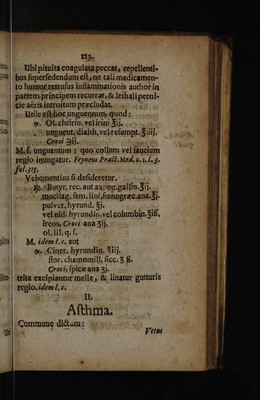 113.
Ubi pituita coagulata peccat, repellenti-
bus supersedendum est, ne tali medicamen-
to humor retrusus inflammationis author in
partem principem recurrat, & lethali perni-
cie aëris introitum præcludat.
Utile est hoc unguentum, quod:
℞. Ol. cheirin. vel irini ℥ij.
unguent. dialth. vel resumpt. ℥iiij.
Croci ℈ij.
M. f. unguentum: quo collum vel faucium
regio inungatur. Feyneus Pract. Med. c. 1. l. 3.
fol. 315.
Vehementius si desideretur.
℞. Butyr. rec. aut axung. gallin. ℥ij.
mucilag. sem. lini, fœnugræc. ana. ℥j.
pulver. hyrund. ℥j.
vel nidi hyrundin. vel columbin. ℥iß.
ireos, Croci ana ʒij.
ol. lil. q. s.
M. idem l. c. aut
℞. Ciner. hyrundin. ℥iij.
flor. chamomill. sicc. ℥ ß.
Croci, spicæ ana ʒj.
trita excipiantur melle, & linatur gutturis
regio. idem l. c.
II.
Asthma.
Commune dictum:
Vetus